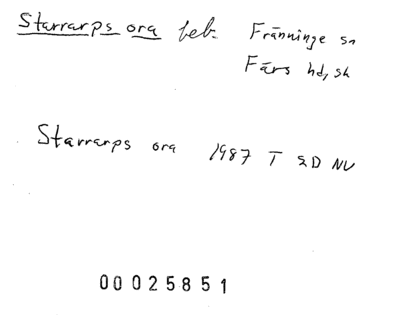 Starrarps ora beb. Fränninge sn
Färs hd, sk
Starrarps ora 1987 T 2D NV
00025851